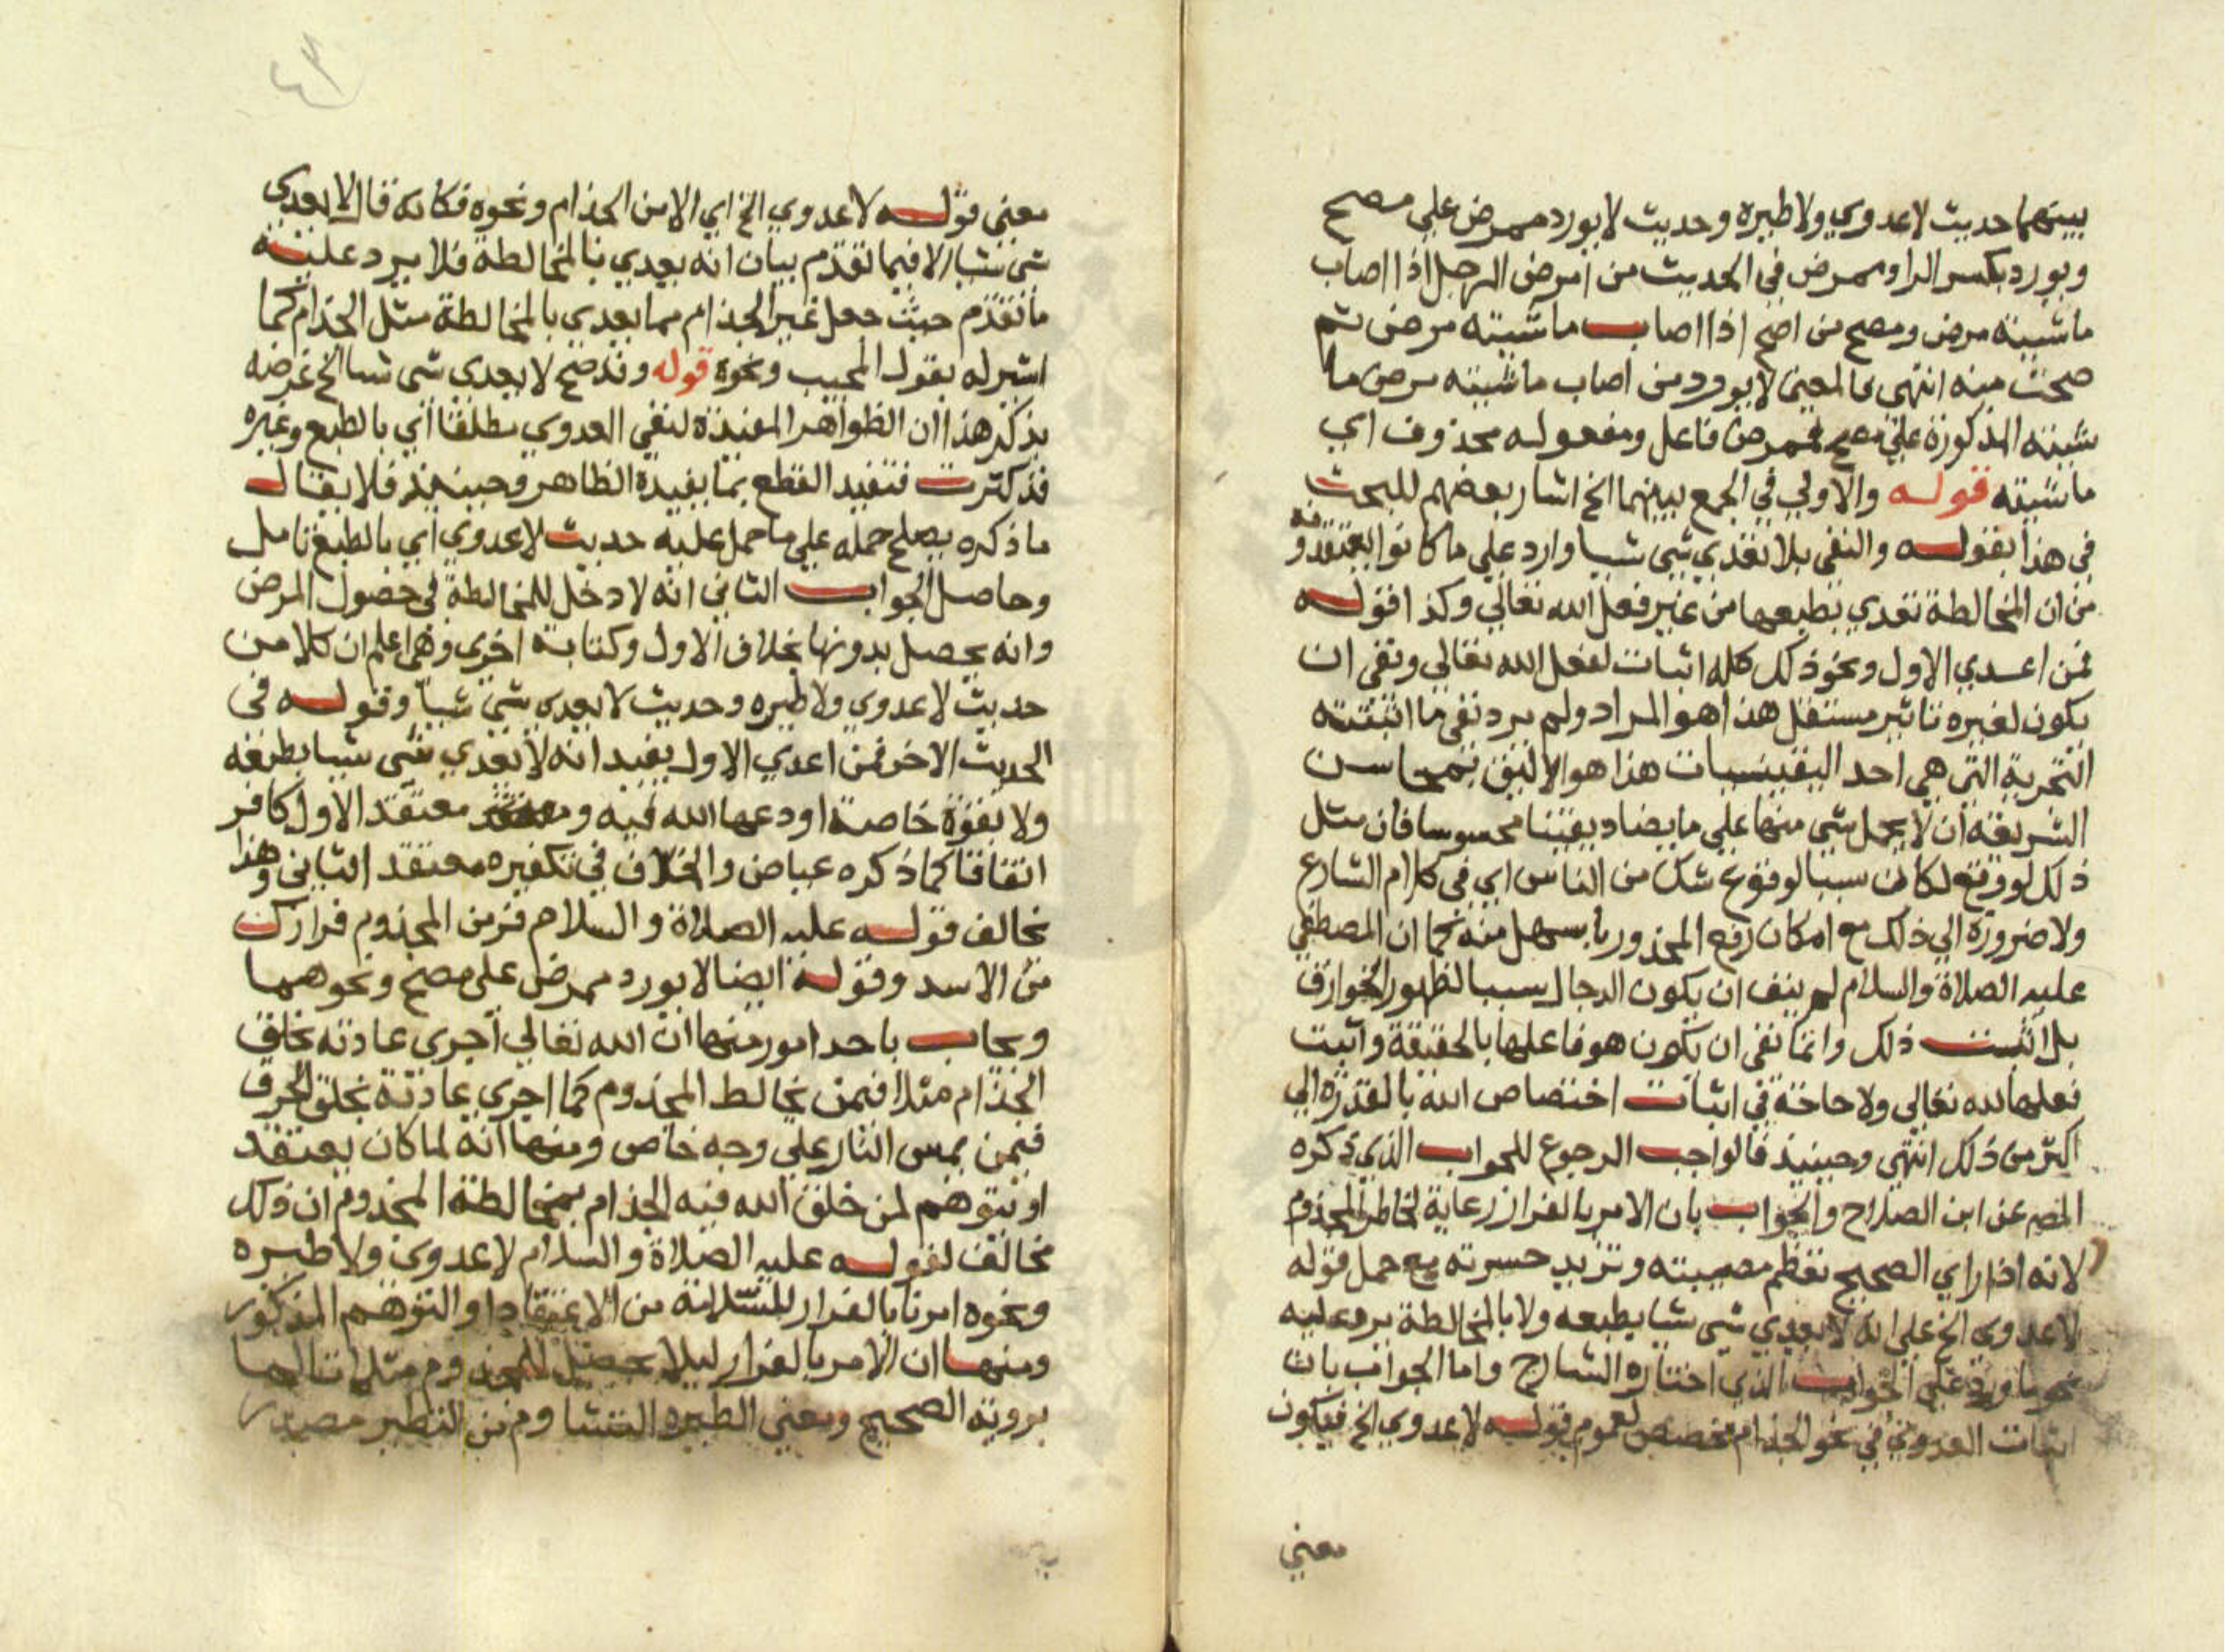 بينهما حديث لا عدوي ولا طيره وحديث لا يورد ممرض علي مصح
ويورد بكسر الرا وممرض في الحديث من امرض الرجل اذا اصاب
ماشيته مرض ومصح من اصح اذا اصاب ماشيته مرض ثم
صحت منه انتهي فالمعني لا يورد من اصاب ماشيته مرض ما
شيته المذكورة علي مصح فممرض فاعل ومفعوله محذوف اي
ماشيته قوله والاولي في الجمع بينهما الخ اشار بعضهم للبحث
في هذا بقوله والنفي بلا يعدي شي شيا وارد علي ما كانوا يعتقدونه
من ان المخالطة تعدي بطبعها من غير فعل الله تعالي وكذا قوله
فمن اعدي الاول ونحو ذلك كله اثبات لفعل الله تعالي ونفي ان
يكون لغيره تاثير مستقل هذا هو المراد ولم يرد نفي ما اثبتته
التجربة التي هي احد اليقينيات هذا هو الاليق بمحاسن
الشريعه ان لا يحمل شي منها علي ما يضاد يقينا محسوسا فان مثل
ذلك لو وقع لكان سببا لوقوع شك من الناس اي في كلام الشارع
ولا ضرورة الي ذلك مع امكان رفع المحذور باسهل منه كما ان المصطفي
عليه الصلاة والسلام لم ينف ان يكون الدجال سببا لظهور الخوارق
بل اثبت ذلك وانما نفي ان يكون هو فاعلها بالحقيقة واثبت
فعلها لله تعالي ولا حاجة في اثبات اختصاص الله بالقدرة الي
اكثر من ذلك انتهي وحينيذ فالواجب الرجوع للجواب الذي ذكره
المص عن ابن الصلاح والجواب بان الامر بالفرار رعاية لخاطر المجذوم
لانه اذا راي الصحيح تعظم مصيبته وتزيد حسرته مع حمل قوله
لا عدوي الخ علي انه لا يعدي شي شيا بطبعه ولا بالمخالطة يرد عليه
نحو ما ورد علي الجواب الذي اختاره الشارح واما الجواب بان
اثبات العدوي في نحو الجذام مخصص لعموم قوله لا عدوي الخ فيكون
معني
معني قوله لا عدوي الخ اي الا من الجذام ونحوه فكانه قال لا يعدي
شي شيا الا فيما تقدم بيان انه يعدي بالمخالطة فلا يرد عليه
ما تقدم حيث جعل غير الجذام مما يعدي بالمخالطة مثل الجذام كما
اشير له بقول المجيب ونحوه قوله وقد صح لا يعدي شي شيا الخ غرضه
بذكر هذا ان الظواهر المفيدة لنفي العدوي مطلقا اي بالطبع وغيره
قد كثرت فتفيد القطع بما يفيده الظاهر وحينيذ فلا يقال
ما ذكره يصلح حمله علي ما حمل عليه حديث لا عدوي اي بالطبع تامل
وحاصل الجواب الثاني انه لا دخل للمخالطة في حصول المرض
وانه يحصل بدونها بخلاف الاول وكتابة اخري وهي اعلم ان كلا من
حديث لا عدوي ولا طيره وحديث لا يعدي شي شيا وقوله في
الحديث الاخر فمن اعدي الاول يفيد انه لا يعدي شي شيا بطبعه
ولا بقوة خاصة اودعها الله فيه ومعتقد الاول كافر
اتفاقا كما ذكره عياض والخلاف في تكفيره معتقد الثاني وهذا
يخالف قوله عليه الصلاة والسلام فر من المجذوم فرارك
من الاسد وقوله ايضا لا يورد ممرض علي مصح ونحوهما
ويجاب باحد امور منها ان الله تعالي اجري عادته بخلق
الجذام مثلا فيمن يخالط المجذوم كما اجري عادته بخلق الحرق
فيمن يمس النار علي وجه خاص ومنها انه لما كان يعتقد
او يتوهم لمن خلق الله فيه الجذام بمخالطة المجذوم ان ذلك
مخالف لقوله عليه الصلاة والسلام لا عدوي ولا طيره
ونحوه امرنا بالفرار للسلامة من الاعتقاد او التوهم المذكور
ومنها ان الامر بالفرار ليلا يحصل للمجذوم مثلا
برويته الصحيح ومعني الطيره التشاوم من التطير مصدر